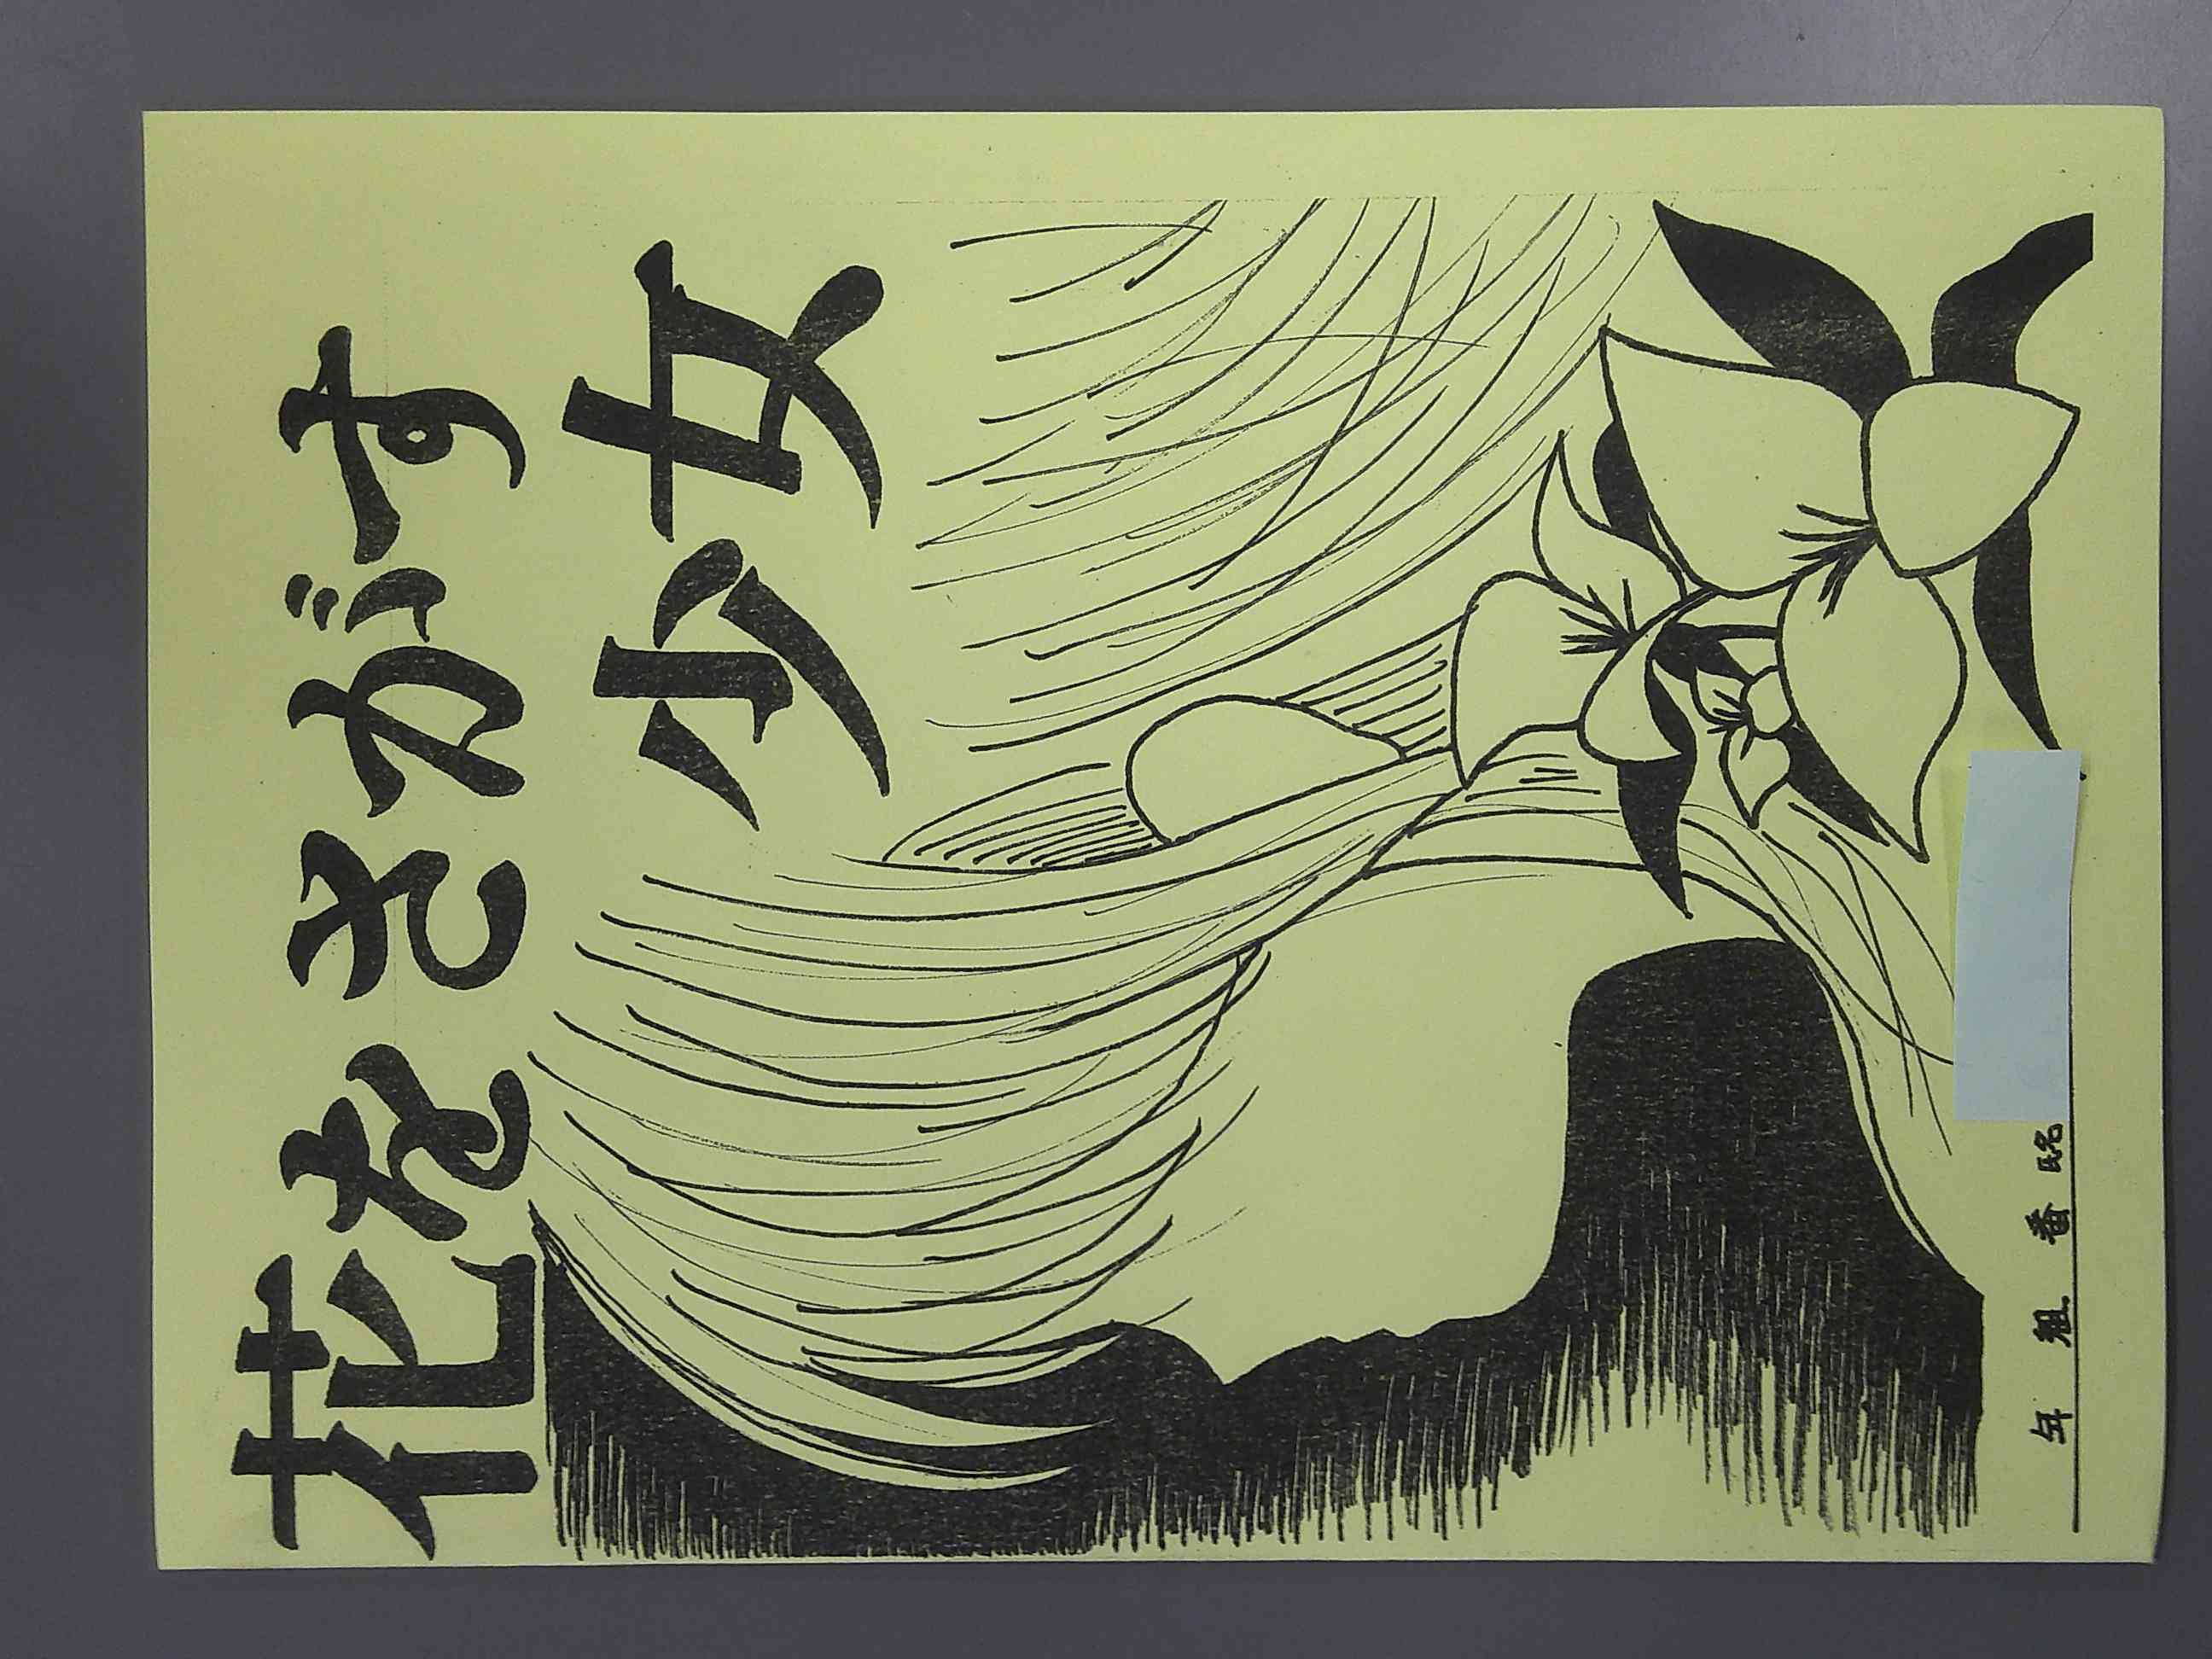 花をさがす
少女
年 組 番 氏名